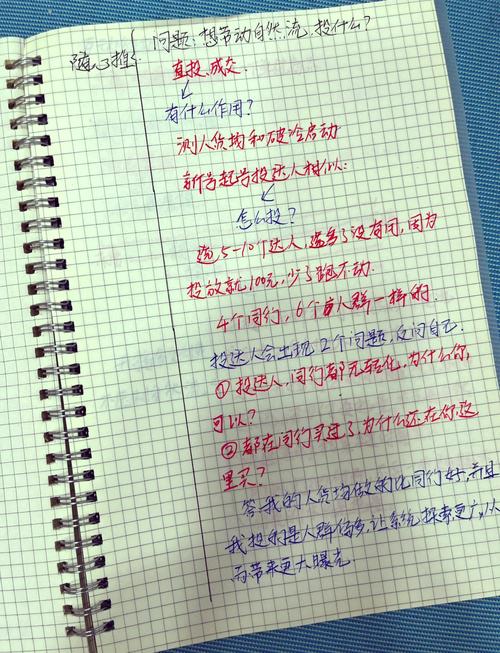 随心推: 问题:想带动自然流,投什么?
直投成交.
有什么作用?
测人货场和破冷启动
新号起号投达人相似:
怎么投?
选5-10个达人,选多了没有用,因为
投放就100元,少了跑不动.
4个同行,6个人群一样的.
投达人会出现2个问题,反问自己.
①投达人,同行都无转化,为什么你
可以?
②都在同行买过了,为什么还在你这
里买?
答我的人货场做的比同行好,并且
我投的是人群偏多,让系统探索更广,从
而带来更大曝光